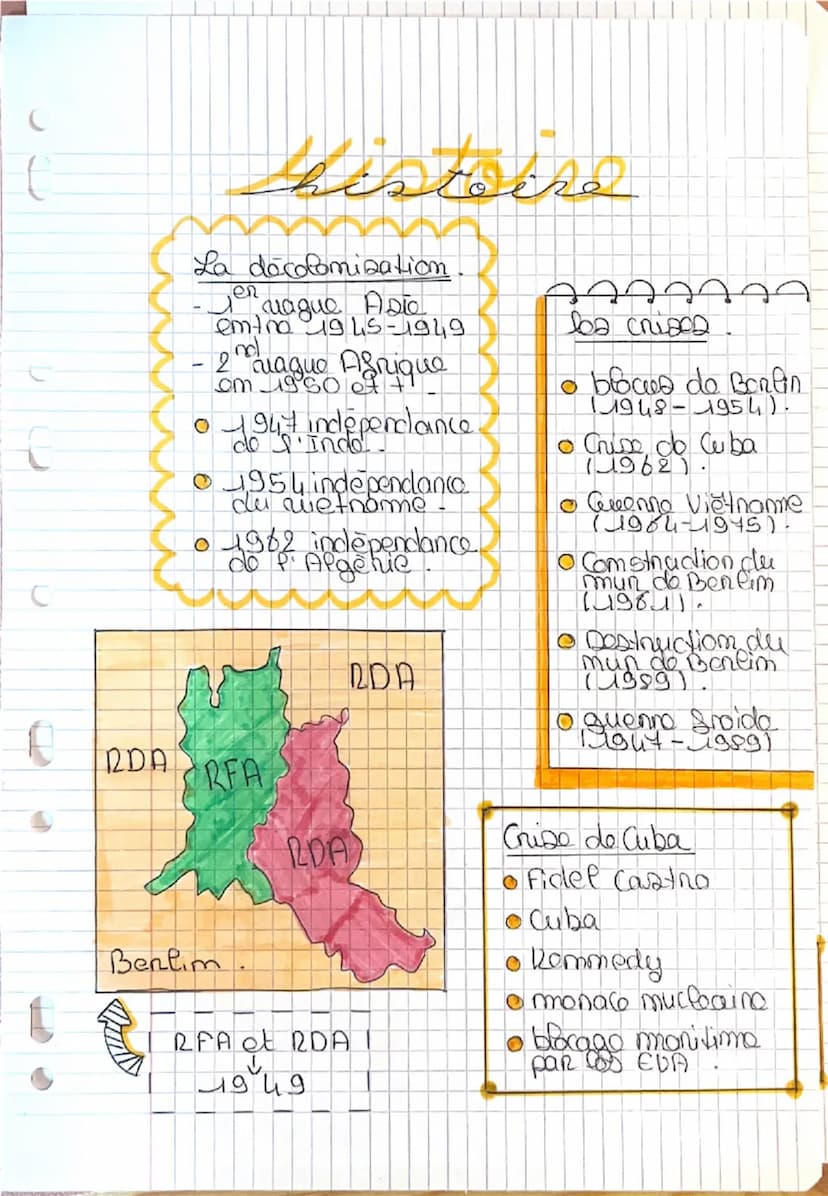 Histoire
histoire
La décolonisation.
- 1er vague Asie
entre 1945-1949
- 2nd vague Afrique
en 1950 et +.
1947 indépendance
de l'Inde.
1954 indépendance
du vietname.
1962 indépendance
de l'Algérie.
les crises.
blocus de Berlin
(1948-1954).
Crise de Cuba
(1962).
Guerre Viêtname
(1964-1975).
Construction du
mur de Berlin
(1961).
Destruction du
mur de Berlin
(1989).
guerre froide
(1947-1989)
RDA
RDA
RFA
RDA
Berlin.
RFA et RDA
↓
1949
Crise de Cuba
Fidel Castro
Cuba
Kennedy
menace nucleaire
blocage maritime
par les EUA.